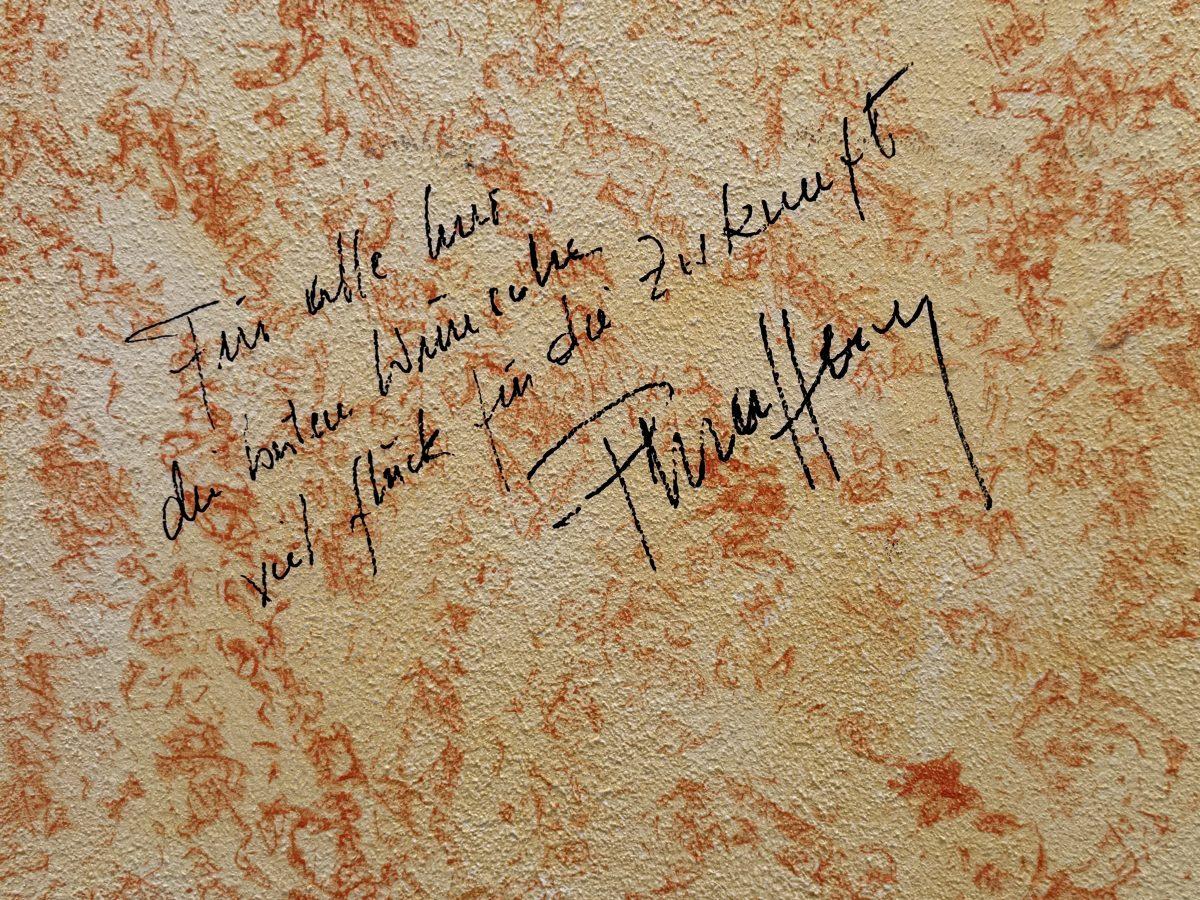 Für alle hier
die besten Wünsche
viel Glück für die Zukunft